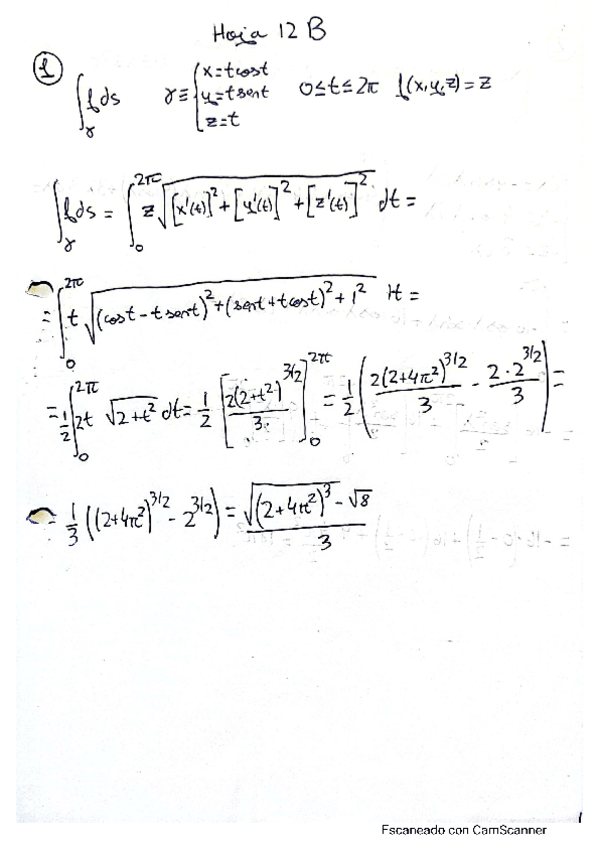 Hoja 12 B
① ∫_γ f ds γ ≡ { x = t cost
y = t sent
z = t 0 ≤ t ≤ 2π f(x,y,z) = z
∫_γ f ds = ∫_0^{2π} z √([x'(t)]² + [y'(t)]² + [z'(t)]²) dt =
= ∫_0^{2π} t √((cost - t sent)² + (sent + t cost)² + 1²) dt =
= 1/2 ∫_0^{2π} 2t √(2+t²) dt = 1/2 [2(2+t²)^{3/2}/3]_0^{2π} = 1/2 (2(2+4π²)^{3/2}/3 - 2·2^{3/2}/3) =
= 1/3 ((2+4π²)^{3/2} - 2^{3/2}) = (√((2+4π²)³) - √8)/3
Escaneado con CamScanner